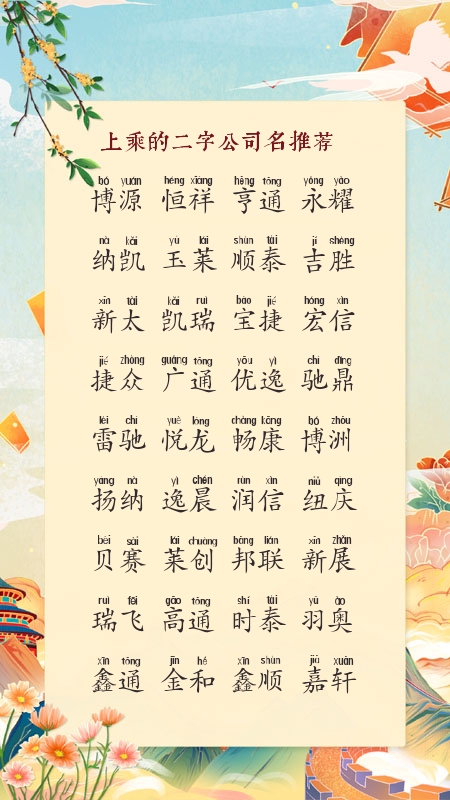 上乘的二字公司名推荐
bó yuán héng xiáng hēng tōng yǒng yào
博源 恒祥 亨通 永耀
nà kǎi yù lái shùn tài jí shèng
纳凯 玉莱 顺泰 吉胜
xīn tài kǎi ruì bǎo jié hóng xìn
新太 凯瑞 宝捷 宏信
jié zhòng guǎng tōng yōu yì chí dǐng
捷众 广通 优逸 驰鼎
léi chí yuè lóng chàng kāng bó zhōu
雷驰 悦龙 畅康 博洲
yáng nà yì chén rùn xìn niǔ qìng
扬纳 逸晨 润信 纽庆
bèi sài lái chuàng bāng lián xīn zhǎn
贝赛 莱创 邦联 新展
ruì fēi gāo tōng shí tài yǔ ào
瑞飞 高通 时泰 羽奥
xīn tōng jīn hé xīn shùn jiā xuān
鑫通 金和 鑫顺 嘉轩